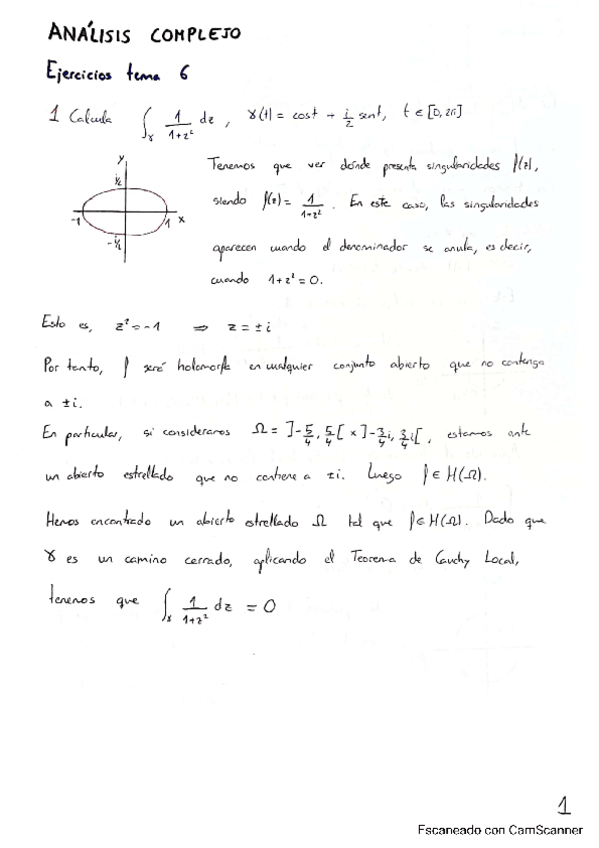 ANÁLISIS COMPLEJO
Ejercicios tema 6
1 Calcula ∫_γ 1/(1+z²) dz , γ(t) = cost + i/2 sent, t ∈ [0, 2π]
y
i/2
-1
1
x
-i/2
Tenemos que ver dónde presenta singularidades f(z),
siendo f(z) = 1/(1+z²) . En este caso, las singularidades
aparecen cuando el denominador se anula, es decir,
cuando 1+z² = 0.
Esto es, z² = -1 ⇒ z = ±i
Por tanto, f será holomorfa en cualquier conjunto abierto que no contenga
a ±i.
En particular, si consideramos Ω = ]-5/4, 5/4[ × ]-3/4 i, 3/4 i[ , estamos ante
un abierto estrellado que no contiene a ±i. Luego f ∈ H(Ω).
Hemos encontrado un abierto estrellado Ω tal que f ∈ H(Ω). Dado que
γ es un camino cerrado, aplicando el Teorema de Cauchy Local,
tenemos que ∫_γ 1/(1+z²) dz = 0
1
Escaneado con CamScanner